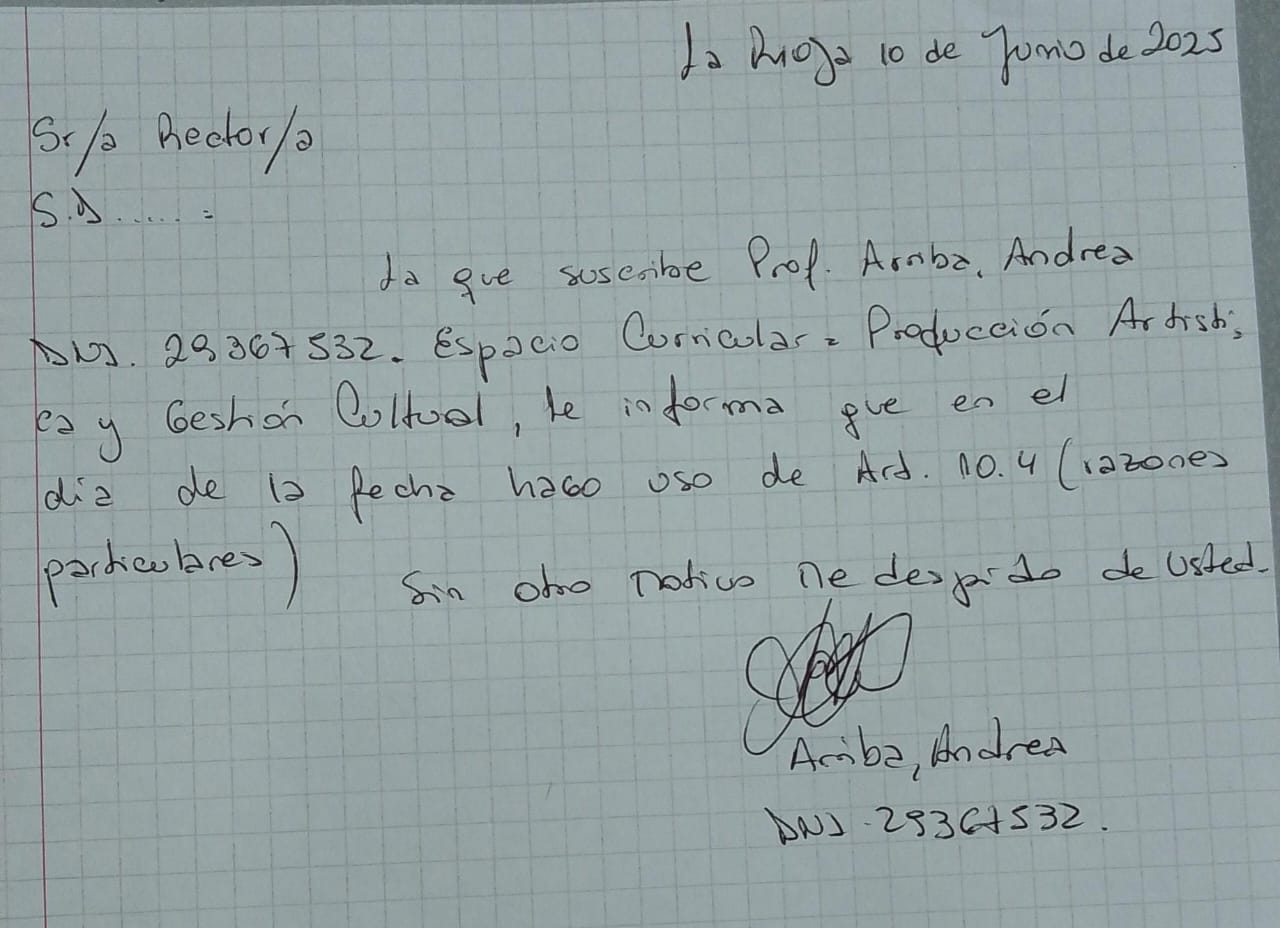 La Rioja 10 de Junio de 2025
Sr/a Rector/a
S.D..... =
La que suscribe Prof. Arriba, Andrea
DNI. 29367532. Espacio Curricular = Producción Artisti,
ca y Gestión Cultural, le informa que en el
día de la fecha hago uso de Art. 10.4 (razones
particulares)
Sin otro motivo me despido de Usted.
Arriba, Andrea
DNI. 29367532.